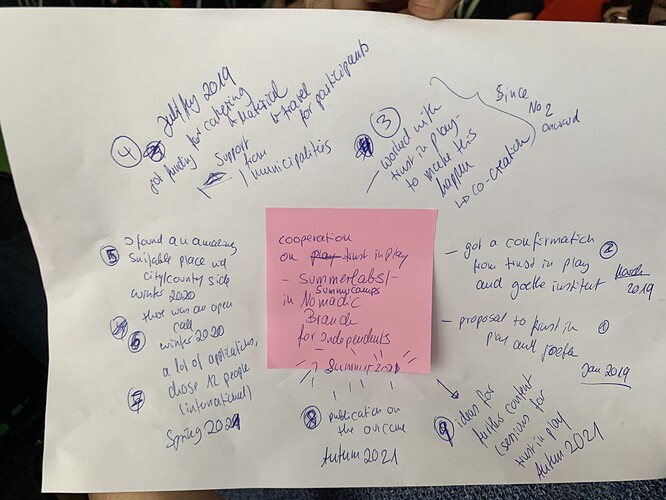 cooperation
on play trust in play
- summerlabs/-
summercamps
in Nomadic
Branch
for independents
Summer 2021
- proposal to trust in ①
play and goethe
Jan 2019
- got a confirmation ②
from trust in play
and goethe institut March
2019
③
- worked with
trust in play
to make this
happen
↳ co-creation
Since
No 2
onward
④ 2019
got funding for catering
& material
& travel
for participants
Support
from
municipalities
⑤ found an amazing
suitable place
city/country side
winter 2020
⑥ there was an open
call
winter 2020
⑦ a lot of applications,
chose 12 people
(international)
Spring 2021
⑧ publication on
the outcome
Autum 2021
⑨ ideas for
further content
for
trust in play
Autum 2021